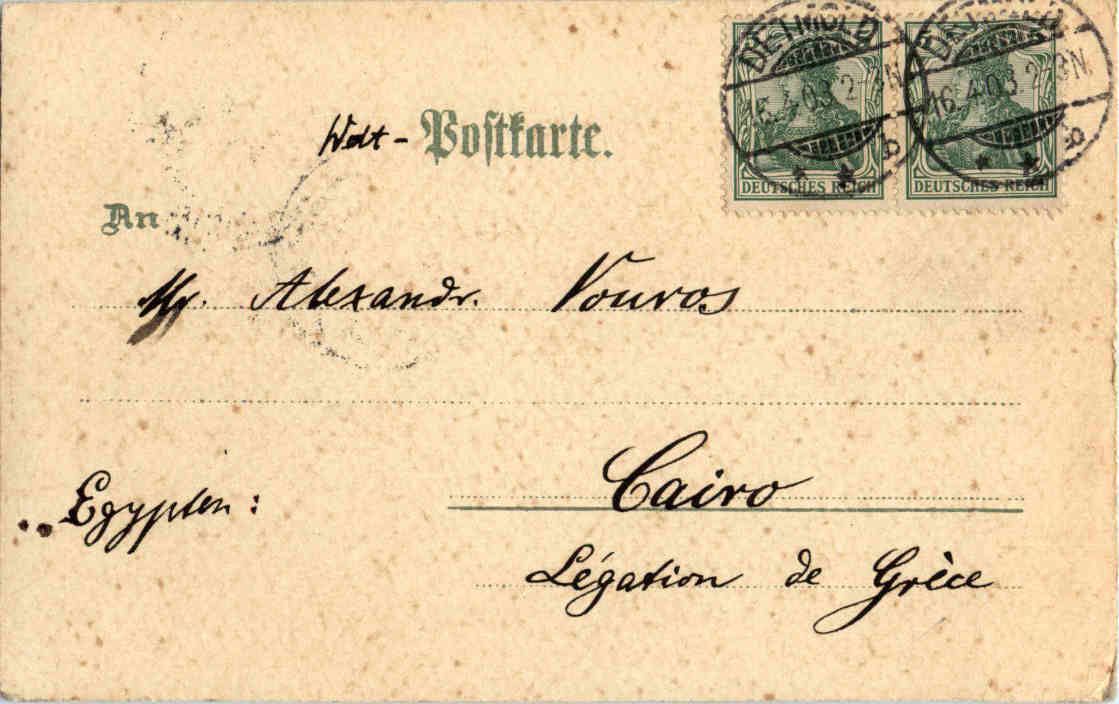 DETMOLD
16.4.03.2-3N.
DEUTSCHES REICH
DETMOLD
16.4.03.2-3N.
DEUTSCHES REICH
Wdt-Postkarte.
An
Hr. Alexandr. Vouros
Cairo
Egypten:
Légation de Grèce